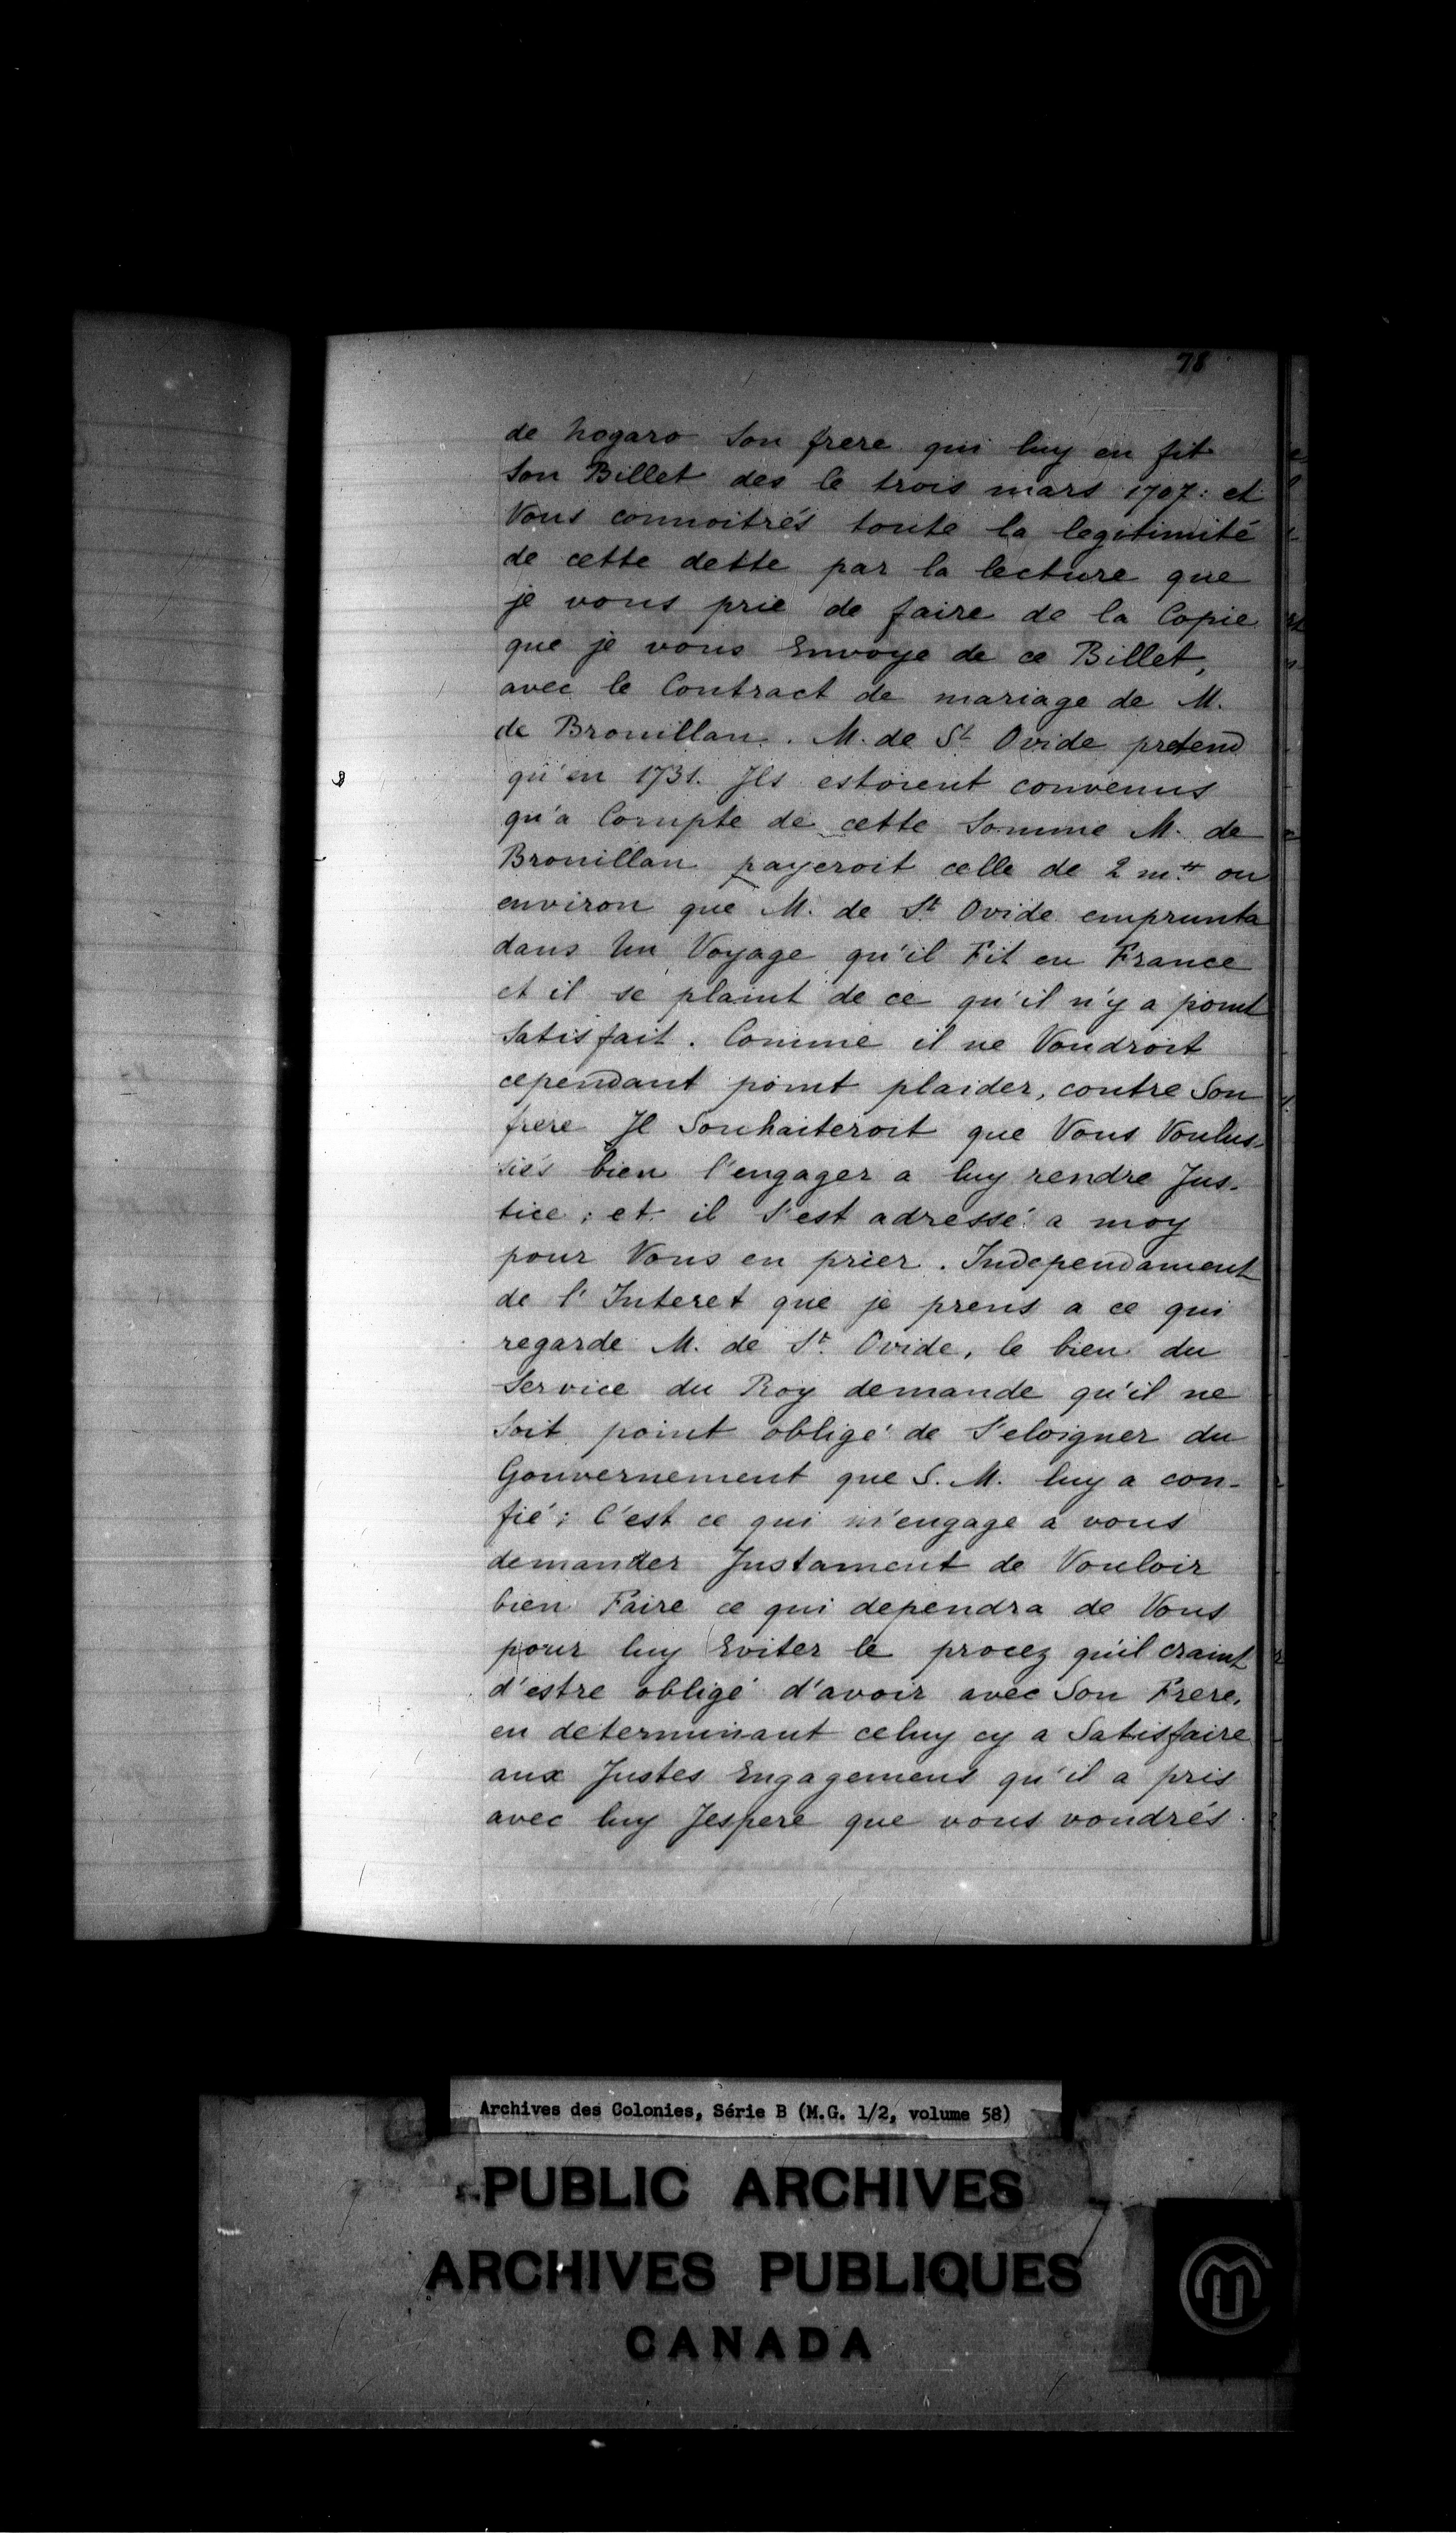 78
de nogaro Son frere qui luy en fit
Son Billet des le trois mars 1707: et
Vous connoitrés toute la legitimité
de cette dette par la lecture que
je vous prie de faire de la Copie
que je vous Envoye de ce Billet,
avec le Contract de mariage de M.
de Brouillan. M. de St Ovide pretend
qu'en 1731. Ils estoient convenus
qu'a Compte de cette Somme M. de
Brouillan payeroit celle de 2 m.tt ou
environ que M. de St Ovide emprunta
dans Un Voyage qu'il Fit en France
et il se plaint de ce qu'il n'y a point
Satisfait. Comme il ne Voudroit
cependant point plaider, contre Son
frere Il Souhaiteroit que Vous Voulus-
siés bien l'engager a luy rendre Jus-
tice; et il S'est adressé a moy
pour Vous en prier. Independament
de l'Interet que je prens a ce qui
regarde M. de St. Ovide, le bien du
Service du Roy demande qu'il ne
Soit point obligé de S'eloigner du
Gouvernement que S. M. luy a con-
fié; C'est ce qui m'engage a vous
demander Instament de Vouloir
bien Faire ce qui dependra de Vous
pour luy Eviter le procez qu'il craint
d'estre obligé d'avoir avec Son Frere,
en determinant celuy cy a Satisfaire
aux Justes Engagemens qu'il a pris
avec luy Jespere que vous voudrés
Archives des Colonies, Série B (M.G. 1/2, volume 58)
PUBLIC ARCHIVES
ARCHIVES PUBLIQUES
CANADA